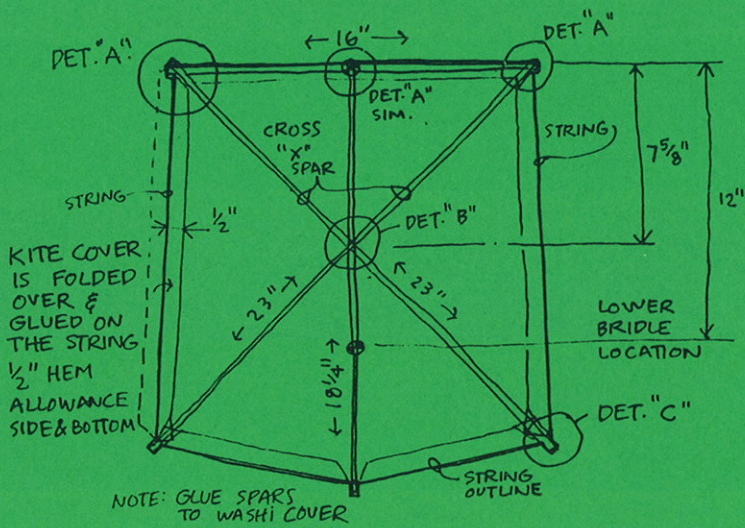 DET. "A".
16"
DET. "A"
DET. "A"
SIM.
CROSS
"X"
SPAR
STRING
7 5/8"
12"
STRING
1/2"
DET. "B"
KITE COVER
IS FOLDED
OVER &
GLUED ON
THE STRING
1/2" HEM
ALLOWANCE
SIDE & BOTTOM
23"
23"
LOWER
BRIDLE
LOCATION
18 1/4"
DET. "C"
STRING
OUTLINE
NOTE: GLUE SPARS
TO WASHi COVER